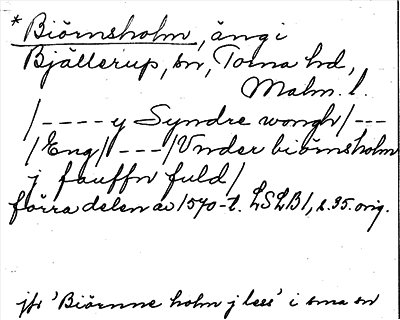 * Biörnsholm, äng i
Bjällerup, sn, Torna hd,
Malm. l.
/---- y Syndre wongh/---
/Eng/ ---/Vnder biörnsholm
j fauffn fuld/
förra delen av 1570-t. LSLB1, s. 35. orig.
jfr 'Biörnne holm j lees' i sma sn